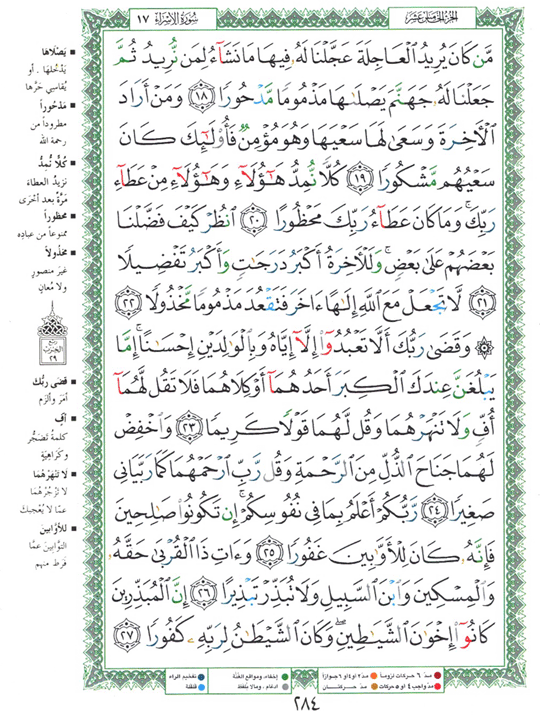 سُورَةُ الإِسْرَاءِ ١٧
الجزء الخامس عشر
مَّن كَانَ يُرِيدُ ٱلْعَاجِلَةَ عَجَّلْنَا لَهُۥ فِيهَا مَا نَشَآءُ لِمَن نُّرِيدُ ثُمَّ
جَعَلْنَا لَهُۥ جَهَنَّمَ يَصْلَىٰهَا مَذْمُومًا مَّدْحُورًا ١٨ وَمَنْ أَرَادَ
ٱلْأَخِرَةَ وَسَعَىٰ لَهَا سَعْيَهَا وَهُوَ مُؤْمِنٌ فَأُو۟لَٰٓئِكَ كَانَ
سَعْيُهُم مَّشْكُورًا ١٩ كُلًّا نُّمِدُّ هَٰٓؤُلَآءِ وَهَٰٓؤُلَآءِ مِنْ عَطَآءِ
رَبِّكَ ۚ وَمَا كَانَ عَطَآءُ رَبِّكَ مَحْظُورًا ٢٠ ٱنظُرْ كَيْفَ فَضَّلْنَا
بَعْضَهُمْ عَلَىٰ بَعْضٍ ۚ وَلَلْأَخِرَةُ أَكْبَرُ دَرَجَٰتٍ وَأَكْبَرُ تَفْضِيلًا
٢١ لَّا تَجْعَلْ مَعَ ٱللَّهِ إِلَٰهًا ءَاخَرَ فَتَقْعُدَ مَذْمُومًا مَّخْذُولًا ٢٢
۞ وَقَضَىٰ رَبُّكَ أَلَّا تَعْبُدُوٓا۟ إِلَّآ إِيَّاهُ وَبِٱلْوَٰلِدَيْنِ إِحْسَٰنًا ۚ إِمَّا
يَبْلُغَنَّ عِندَكَ ٱلْكِبَرَ أَحَدُهُمَآ أَوْ كِلَاهُمَا فَلَا تَقُل لَّهُمَآ
أُفٍّ وَلَا تَنْهَرْهُمَا وَقُل لَّهُمَا قَوْلًا كَرِيمًا ٢٣ وَٱخْفِضْ
لَهُمَا جَنَاحَ ٱلذُّلِّ مِنَ ٱلرَّحْمَةِ وَقُل رَّبِّ ٱرْحَمْهُمَا كَمَا رَبَّيَانِى
صَغِيرًا ٢٤ رَّبُّكُمْ أَعْلَمُ بِمَا فِى نُفُوسِكُمْ ۚ إِن تَكُونُوا۟ صَٰلِحِينَ
فَإِنَّهُۥ كَانَ لِلْأَوَّٰبِينَ غَفُورًا ٢٥ وَءَاتِ ذَا ٱلْقُرْبَىٰ حَقَّهُۥ
وَٱلْمِسْكِينَ وَٱبْنَ ٱلسَّبِيلِ وَلَا تُبَذِّرْ تَبْذِيرًا ٢٦ إِنَّ ٱلْمُبَذِّرِينَ
كَانُوٓا۟ إِخْوَٰنَ ٱلشَّيَٰطِينِ ۖ وَكَانَ ٱلشَّيْطَٰنُ لِرَبِّهِۦ كَفُورًا ٢٧
يَصْلَاهَا
يَدْخُلُهَا . أو
يُقَاسِي حَرَّهَا
مَدْحُوراً
مطروداً من
رحمة الله
كُلًّا نُمِدُّ
نَزِيدُ العطاءَ
مَرَّةً بعد أخرى
مَحْظُوراً
ممنوعاً من عباده
مَخْذُولاً
غيرَ منصورٍ
ولا مُعانٍ
ربع
الحزب
٢٩
قَضَى رَبُّكَ
أمَرَ وألزم
أُفٍّ
كلمةُ تَضَجُّرٍ
وكَرَاهِيَةٍ
لا تَنْهَرْهُمَا
لا تَزْجُرْهُمَا
عمّا لا يُعْجِبُك
لِلأَوَّابِين
التوّابينَ عمّا
فَرَطَ منهم
مدّ ٦ حركات لزوماً
مدّ ٢ أو ٤ أو ٦ جوازاً
مدّ واجب ٤ أو ٥ حركات
مدّ حركتان
إخفاء، ومواقع الغنّة
ادغام، وما لا يُلفظ
تفخيم الراء
قلقلة
٢٨٤